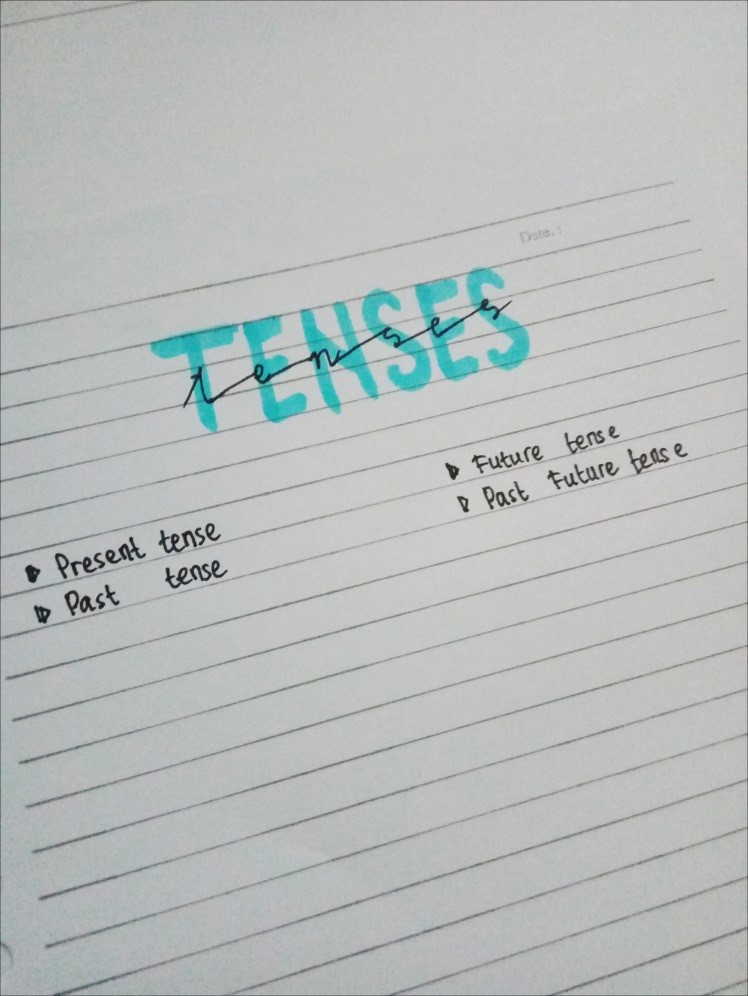 Date.:
TENSES
tenses
Present tense
Past tense
Future tense
Past Future tense